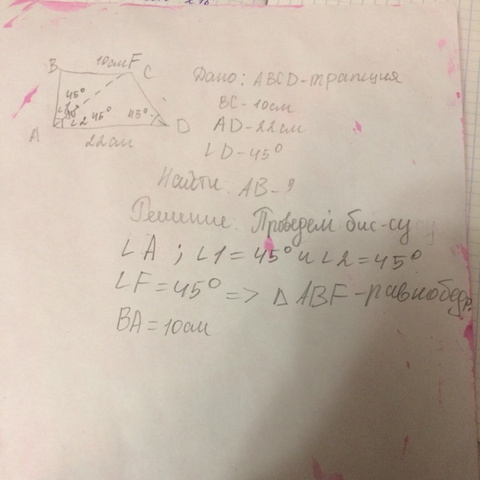 B 10см F C
45° 1
A 2 45° 45° D
22см
Дано: ABCD-трапеция
BC-10см
AD-22см
∠D-45°
Найти: AB-?
Решение: Проведём бис-су
∠A ; ∠1=45° и ∠2=45°
∠F=45° => △ABF-равнобедр.
BA=10см